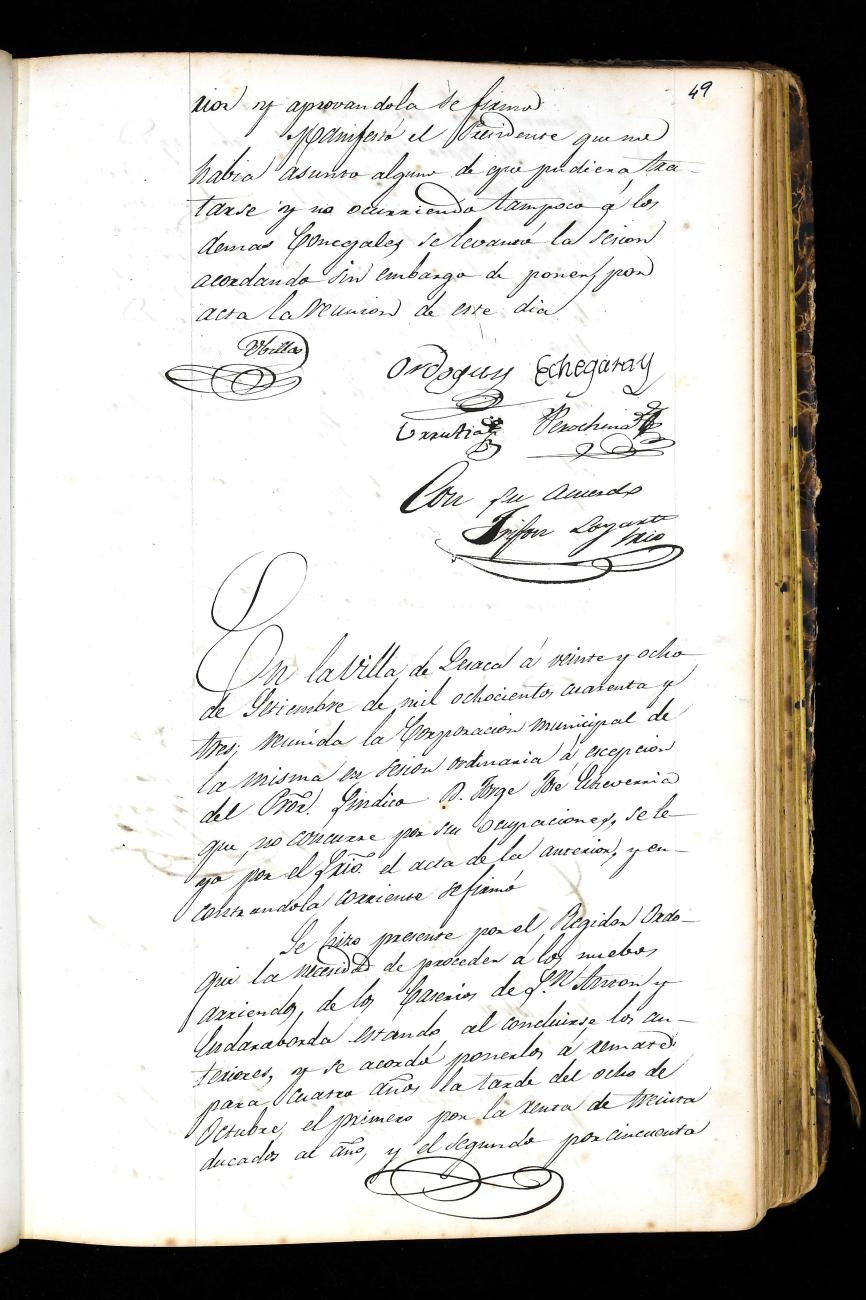 49
rior y aprovandola se firmó
Manifestó el Presidente que no
habia asunto alguno de que pudiera tra-
tarse y no ocurriendo tampoco á los
demas Concejales se levantó la sesion
acordando sin embargo de poner, por
acta la reunion de este dia
Ubillos
Ordoquy Echegaray
Urrutia Perochena
Con su acuerdo
Trifon Loyarte
Srio
En la Villa de Lesaca á veinte y ocho
de Setiembre de mil ochocientos cuarenta y
tres; reunida la Corporacion Municipal de
la misma en sesion ordinaria á escepcion
del Pror. Sindico D. Jorge José Echeverria
que, no concurre por sus ocupaciones, se le-
yó por el Srio. el acta de la anterior, y en-
contrandola corriente se firmó
Se hizo presente por el Regidor Ordo-
qui la necesidad de proceder á los nuebos
arriendos, de los Caserios de Sn. Anton y
Endaraborda estando al concluirse los an-
teriores, y se acordó ponerlos á remate
para cuatro años la tarde del ocho de
Octubre, el primero por la renta de treinta
ducados al año, y el segundo por cincuenta